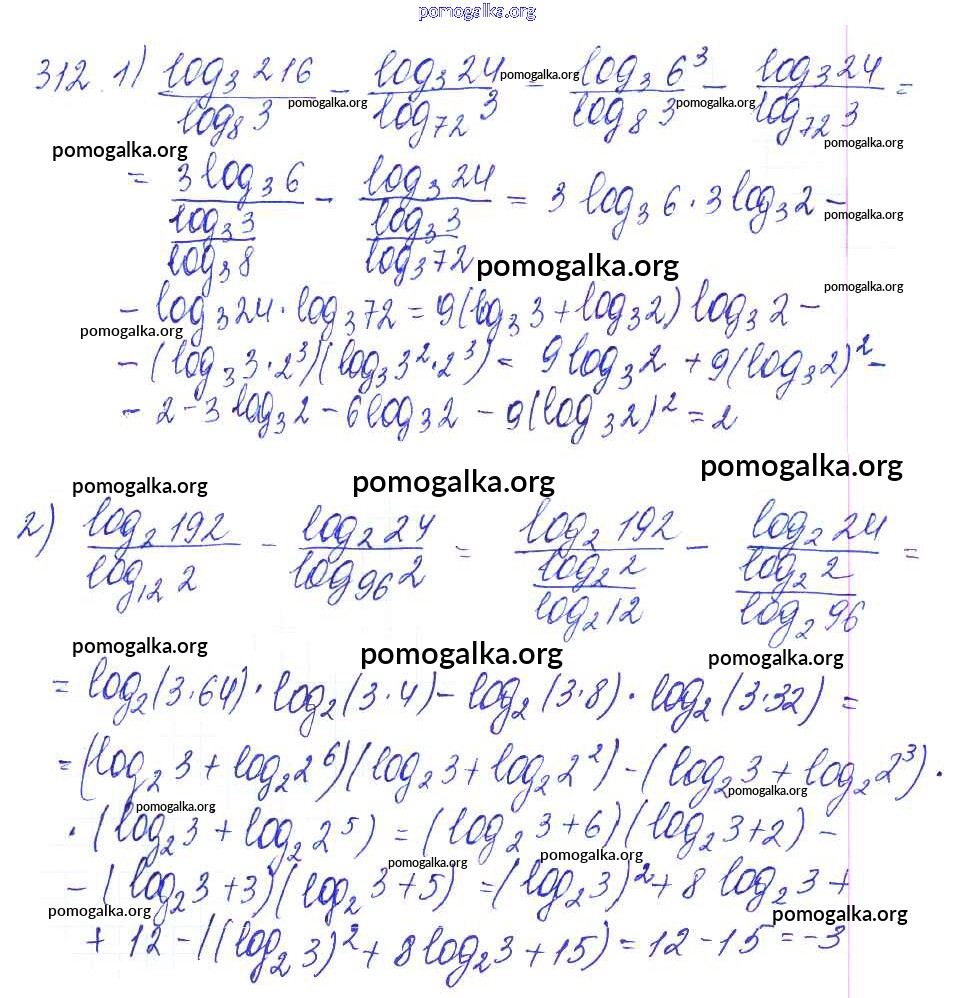 pomogalka.org
312. 1) log₃ 216 / log₈ 3 − log₃ 24 / log₇₂ 3 = log₃ 6³ / log₈ 3 − log₃ 24 / log₇₂ 3 =
pomogalka.org pomogalka.org pomogalka.org pomogalka.org
pomogalka.org
= 3 log₃ 6 / (log₃ 3 / log₃ 8) − log₃ 24 / (log₃ 3 / log₃ 72) = 3 log₃ 6 · 3 log₃ 2 −
pomogalka.org
pomogalka.org
pomogalka.org
− log₃ 24 · log₃ 72 = 9(log₃ 3 + log₃ 2) log₃ 2 −
pomogalka.org
− (log₃ 3 · 2³)(log₃ 3² · 2³) = 9 log₃ 2 + 9(log₃ 2)² −
− 2 − 3 log₃ 2 − 6 log₃ 2 − 9(log₃ 2)² = 2
pomogalka.org pomogalka.org pomogalka.org
2) log₂ 192 / log₁₂ 2 − log₂ 24 / log₉₆ 2 = log₂ 192 / (log₂ 2 / log₂ 12) − log₂ 24 / (log₂ 2 / log₂ 96) =
pomogalka.org pomogalka.org pomogalka.org
= log₂ (3 · 64) · log₂ (3 · 4) − log₂ (3 · 8) · log₂ (3 · 32) =
= (log₂ 3 + log₂ 2⁶)(log₂ 3 + log₂ 2²) − (log₂ 3 + log₂ 2³) ·
pomogalka.org pomogalka.org
· (log₂ 3 + log₂ 2⁵) = (log₂ 3 + 6)(log₂ 3 + 2) −
pomogalka.org pomogalka.org
− (log₂ 3 + 3)(log₂ 3 + 5) = (log₂ 3)² + 8 log₂ 3 +
pomogalka.org pomogalka.org
+ 12 − ((log₂ 3)² + 8 log₂ 3 + 15) = 12 − 15 = −3